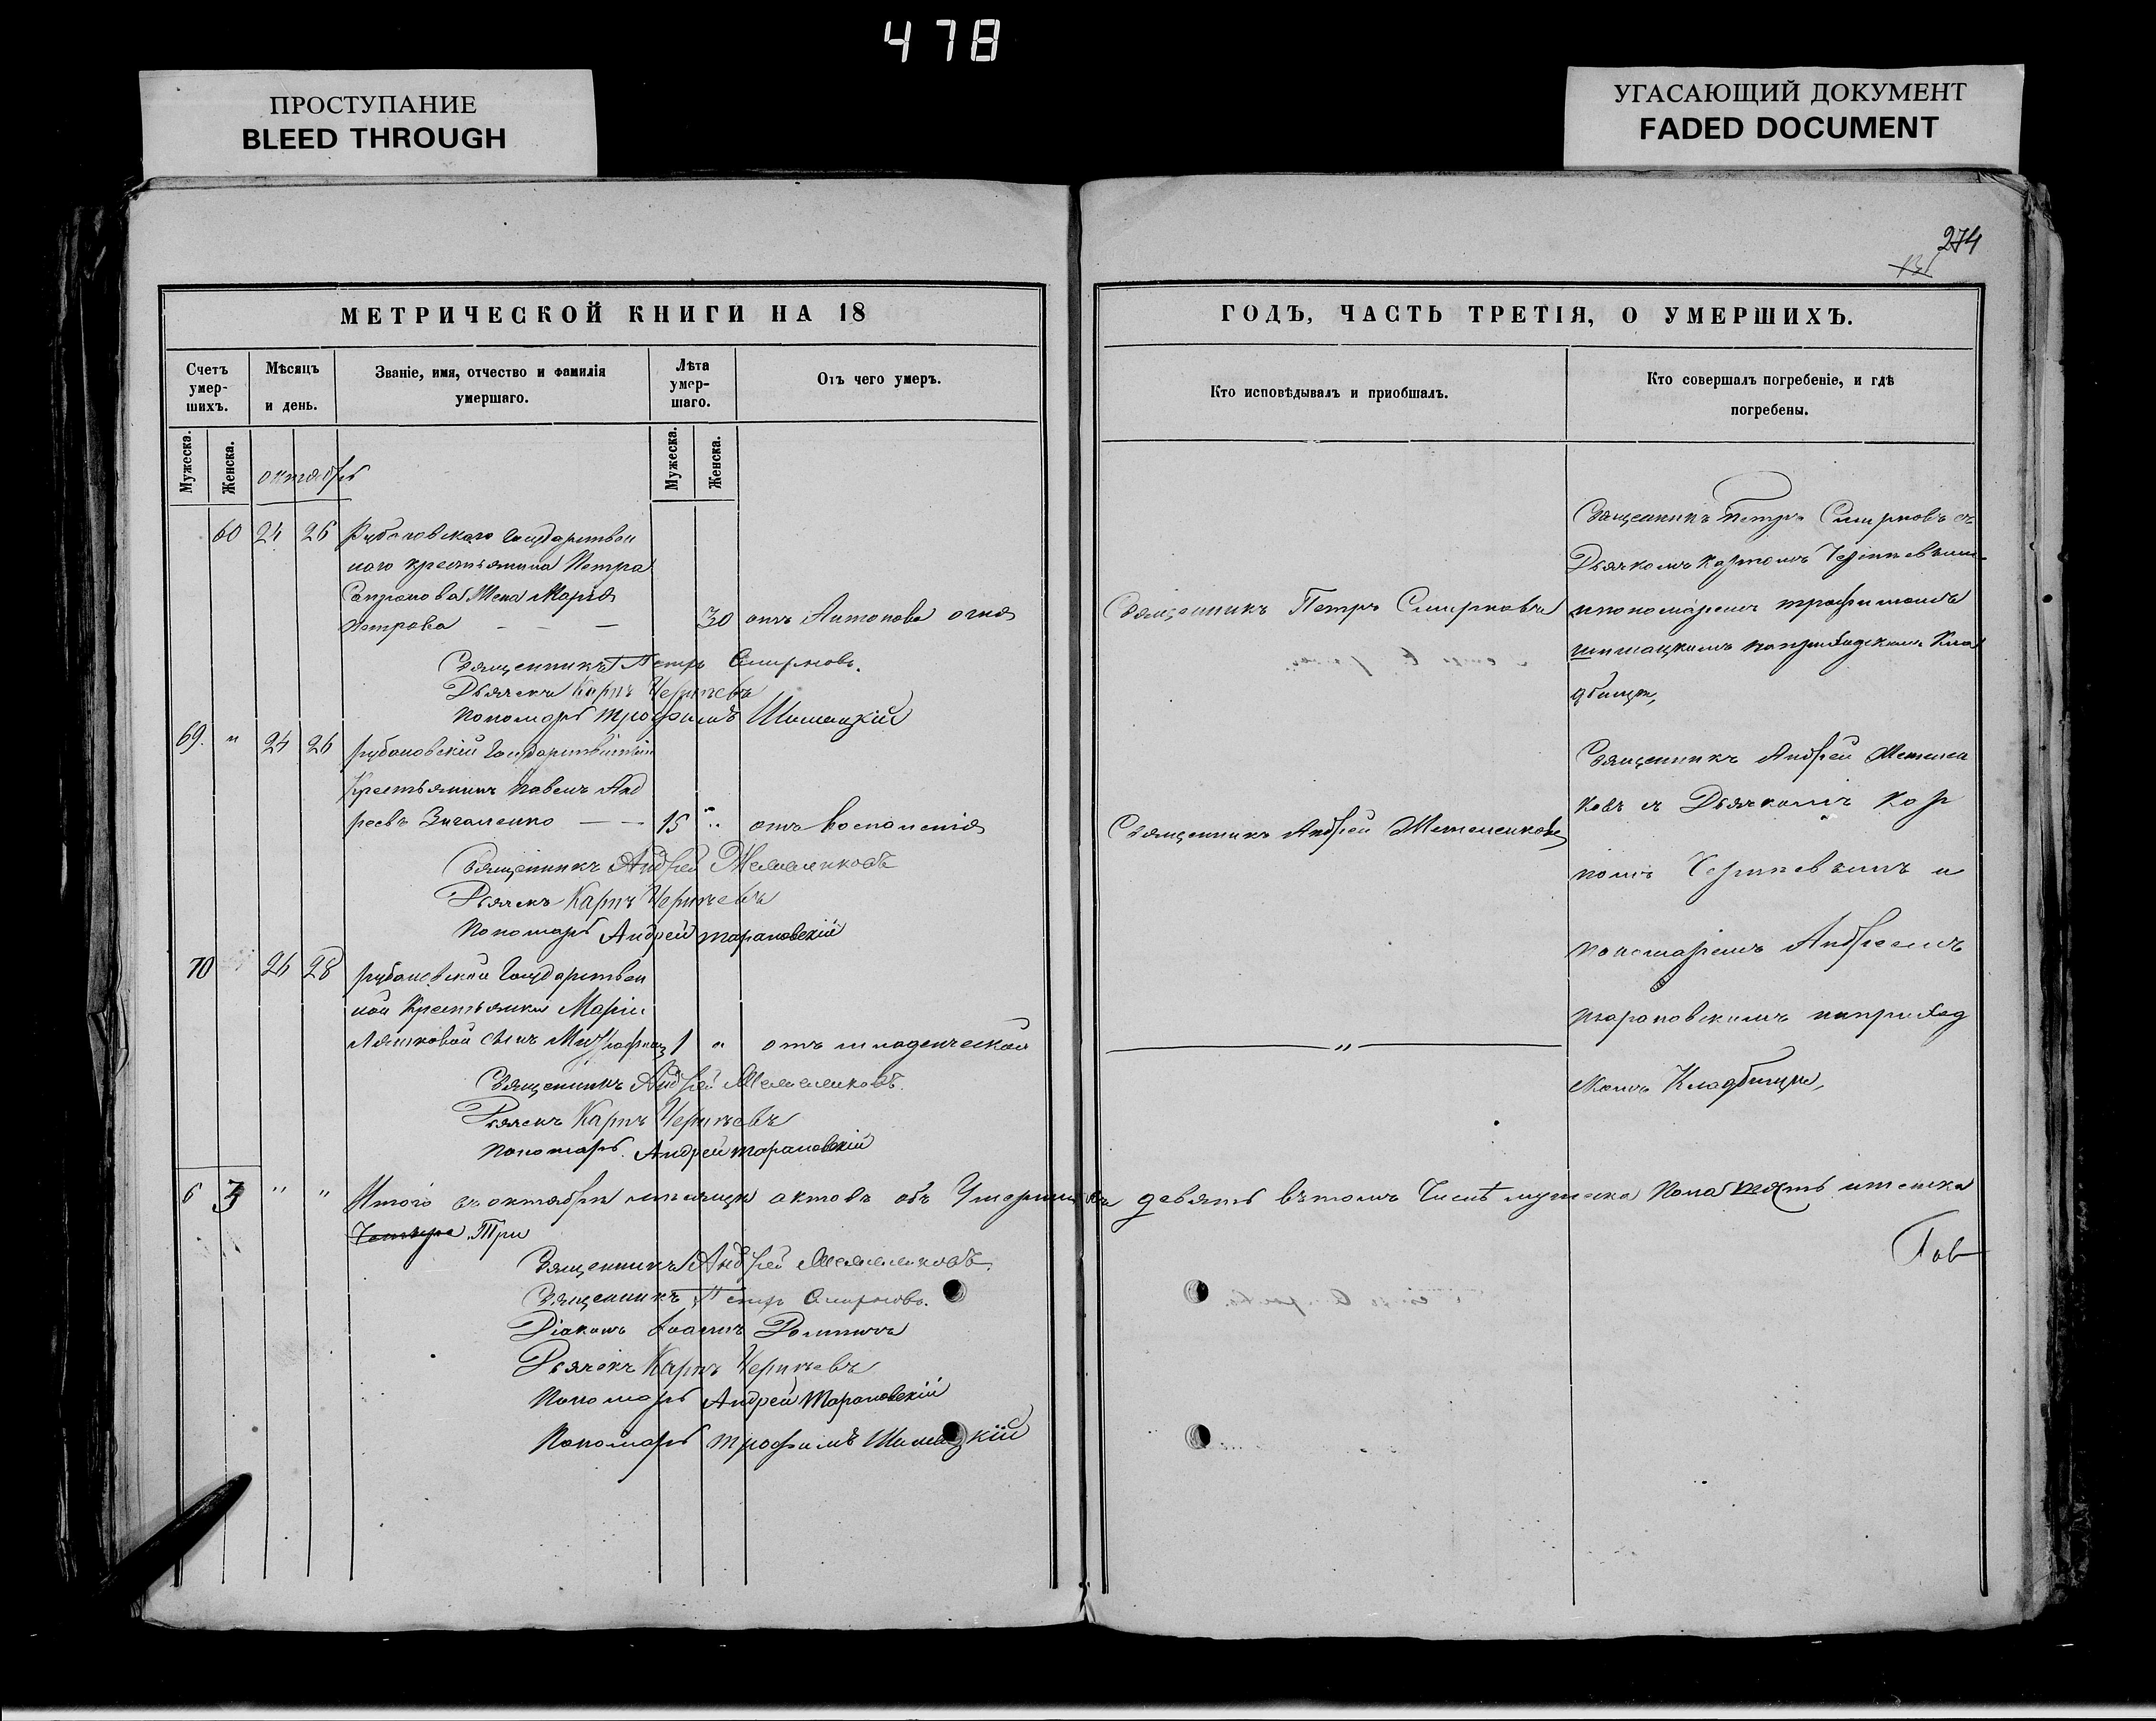 478
ПРОСТУПАНИЕ
BLEED THROUGH
УГАСАЮЩИЙ ДОКУМЕНТ
FADED DOCUMENT
274
131
МЕТРИЧЕСКОЙ КНИГИ НА 18
Счетъ умер-шихъ.
Мѣсяцъ и день.
Званіе, имя, отчество и фамилія умершаго.
Лѣта умер-шаго.
Отъ чего умеръ.
Мужеска.
Женска.
Мужеска.
Женска.
октябрь
60 24 26 Рубановскаго государствен
наго крестьянина Петра
Сапронова Жена Марія
Петрова — — — 30 отъ Антонова огня
Священникъ Петръ Смирновъ.
Дьячекъ Карпъ Черничевъ
Пономарь Трофимъ Шишацкій
69. " 24 26 рубановскій государственный
Крестьянинъ Павелъ Анд
реевъ — — 15 " отъ воспаленія
Священникъ Андрей
Дьячекъ Карпъ Черничевъ
Пономарь Андрей Тарановскій
70 26 28 рубановской государствен
ной Крестьянки Маріи
сынъ Митрофанъ 1 " отъ младенческой
Священникъ Андрей
Дьячекъ Карпъ Черничевъ
Пономарь Андрей Тарановскій
6 3 " " Итого въ октябрѣ мѣсяцѣ актовъ объ Умершихъ девять въ томъ числѣ мужеска пола шесть и женска
Четыре Три
Священникъ Андрей
Священникъ Петръ Смирновъ.
Діаконъ Іоаннъ
Дьячекъ Карпъ Черничевъ
Пономарь Андрей Тарановскій
Пономарь Трофимъ Шишацкій
ГОДЪ, ЧАСТЬ ТРЕТІЯ, О УМЕРШИХЪ.
Кто исповѣдывалъ и пріобщалъ.
Кто совершалъ погребеніе, и гдѣ погребены.
Священникъ Петръ Смирновъ
Священникъ Петръ Смирновъ съ
Дьячкомъ Карпомъ Черничевымъ
и пономаремъ Трофимомъ
Шишацкимъ на приходскомъ Кла
дбищѣ,
Священникъ Андрей
Священникъ Андрей
съ Дьячкомъ Кар
помъ Черничевымъ и
пономаремъ Андреемъ
Тарановскимъ на приход
скомъ Кладбищѣ,
"